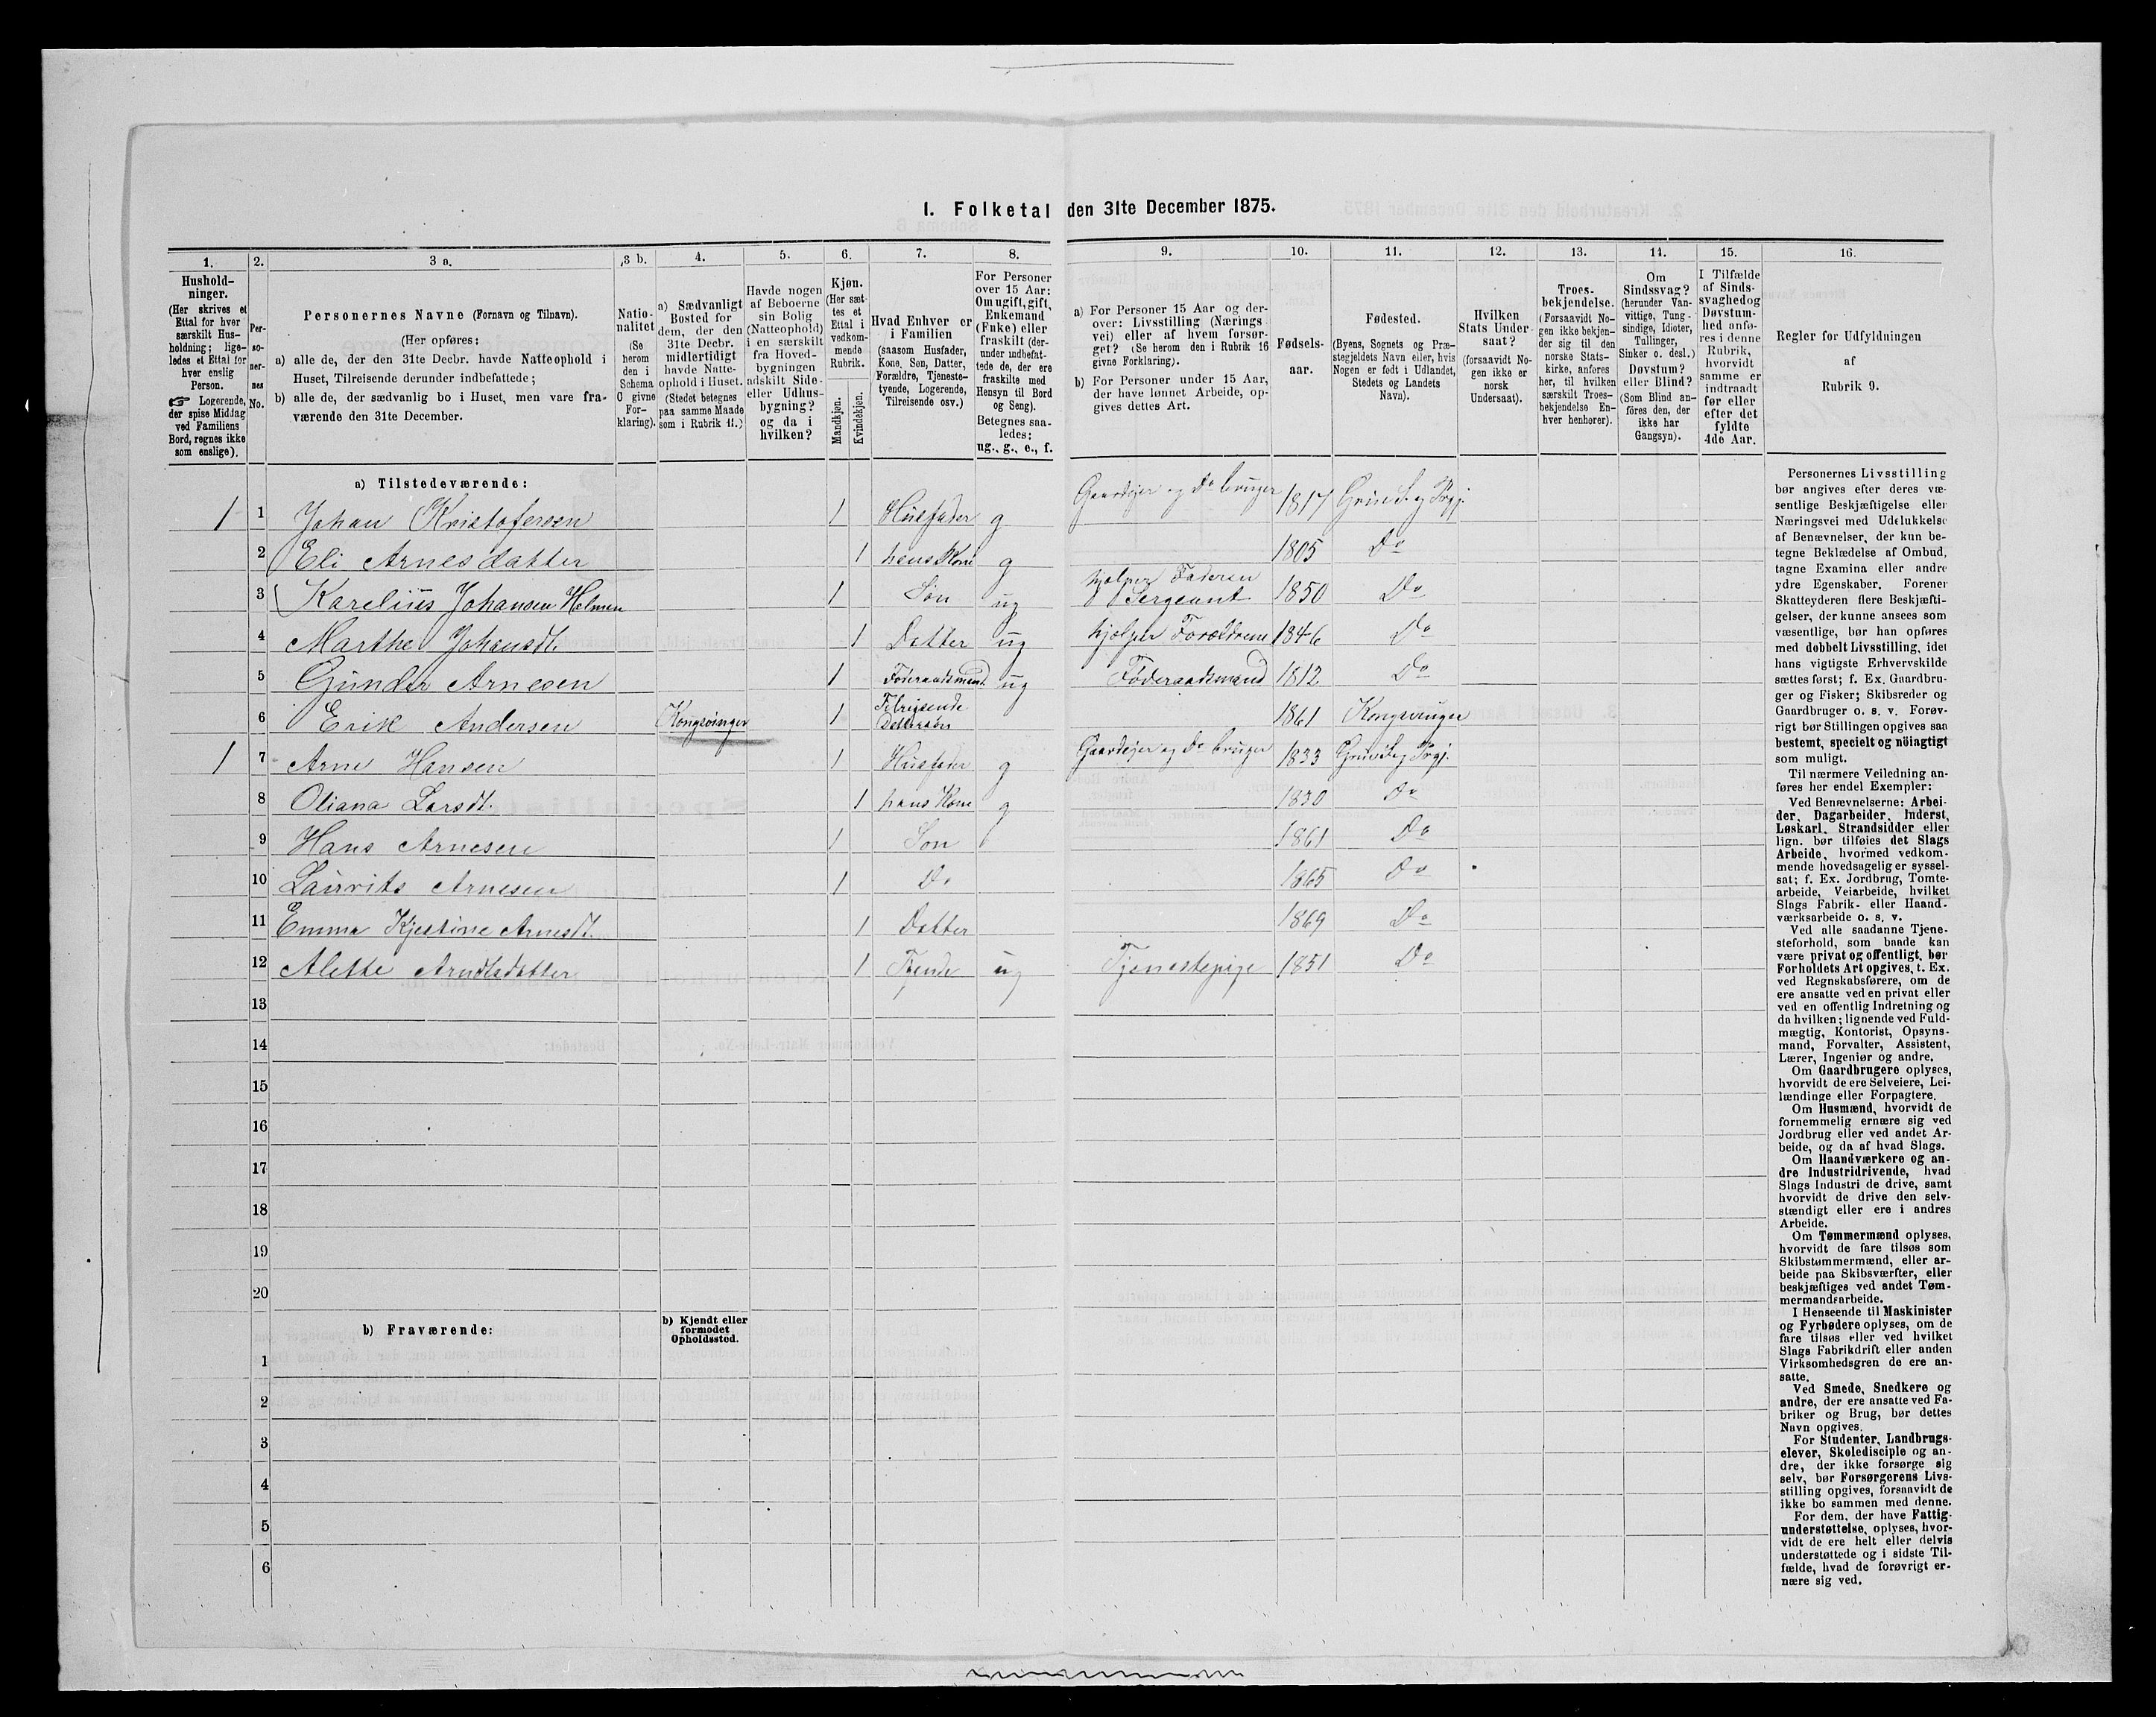 I. Folketal den 31te December 1875.
1. 2. 3 a. 3 b. 4. 5. 6. 7. 8. 9. 10. 11. 12. 13. 14. 15. 16.
Hushold-
ninger.
(Her skrives et
Ettal for hver
særskilt Hus-
holdning; lige-
ledes et Ettal for
hver enslig
Person.
☞ Logerende,
der spise Middag
ved Familiens
Bord, regnes ikke
som enslige).
Per-
so-
ner-
nes
No.
Personernes Navne (Fornavn og Tilnavn).
(Her opføres:
a) alle de, der den 31te Decbr. havde Natteophold i
Huset, Tilreisende derunder indbefattede;
b) alle de, der sædvanlig bo i Huset, men vare fra-
værende den 31te December.
Natio-
nalitet
(Se
herom
den i
Schema
C givne
For-
klaring).
a) Sædvanligt
Bosted for
dem, der den
31te Decbr.
midlertidigt
havde Natte-
ophold i Huset.
(Stedet betegnes
paa samme Maade
som i Rubrik 11.)
Havde nogen
af Beboerne
sin Bolig
(Natteophold)
i en særskilt
fra Hoved-
bygningen
adskilt Side-
eller Udhus-
bygning?
og da i
hvilken?
Kjøn.
(Her sæt-
tes et
Ettal i
vedkom-
mende
Rubrik.
Mandkjøn.
Kvindekjøn.
Hvad Enhver er
i Familien
(saasom Husfader,
Kone, Søn, Datter,
Forældre, Tjeneste-
tyende, Logerende,
Tilreisende osv.)
For Personer
over 15 Aar:
Om ugift, gift,
Enkemand
(Enke) eller
fraskilt (der-
under indbefat-
tede de, der ere
fraskilte med
Hensyn til Bord
og Seng).
Betegnes saa-
ledes:
ug., g., e., f.
a) For Personer 15 Aar og der-
over: Livsstilling (Nærings
vei) eller af hvem forsør-
get? (Se herom den i Rubrik 16
givne Forklaring).
b) For Personer under 15 Aar,
der have lønnet Arbeide, op-
gives dettes Art.
Fødsels-
aar.
Fødested.
(Byens, Sognets og Præ-
stegjeldets Navn eller, hvis
Nogen er født i Udlandet,
Stedets og Landets
Navn).
Hvilken
Stats Under-
saat?
(forsaavidt No-
gen ikke er
norsk
Undersaat).
Troes-
bekjendelse.
(Forsaavidt No-
gen ikke bekjen-
der sig til den
norske Stats-
kirke, anføres
her, til hvilken
særskilt Troes-
bekjendelse En-
hver henhører).
Om
Sindssvag?
(herunder Van-
vittige, Tung-
sindige, Idioter,
Tullinger,
Sinker o. desl.)
Døvstum?
eller Blind?
(Som Blind an-
føres den, der
ikke har
Gangsyn).
I Tilfælde
af Sinds-
svaghed og
Døvstum-
hed anfø-
res i denne
Rubrik,
hvorvidt
samme er
indtraadt
før eller
efter det
fyldte
4de Aar.
Regler for Udfyldningen
af
Rubrik 9.
a) Tilstedeværende:
1 1 Johan Kristofersen 1 Husfader g Gaardejer og Do bruger 1817 Grue S. og Prgj.
2 Eli Arnesdatter 1 hans Kone g 1805 Do
3 Karelius Johansen Holmen 1 Søn ug hjælper Faderen Sergeant 1850 Do
4 Marthe Johansdt. 1 Datter ug hjælper Forældrene 1846 Do
5 Gunder Arnesen 1 Føderaadsmand ug Føderaadsmand 1812 Do
6 Erik Andersen Kongsvinger 1 Tilreisende Dattersøn 1861 Kongsvinger
1 7 Arne Hansen 1 Husfader g Gaardejer og Do bruger 1833 Grue S. og Prgj.
8 Oliana Larsdt. 1 hans Kone g 1830 Do
9 Hans Arnesen 1 Søn 1861 Do
10 Laurits Arnesen 1 Do 1865 Do
11 Emma Kjestine Arnesdt. 1 Datter 1869 Do
12 Alette Arndtsdatter 1 Tyende ug Tjenestepige 1851 Do
13
14
15
16
17
18
19
20
b) Fraværende:
b) Kjendt eller
formodet
Opholdssted.
1
2
3
4
5
6
Personernes Livsstilling
bør angives efter deres væ-
sentlige Beskjæftigelse eller
Næringsvei med Udelukkelse
af Benævnelser, der kun be-
tegne Beklædelse af Ombud,
tagne Examina eller andre
ydre Egenskaber. Forener
Skatteyderen flere Beskjæfti-
gelser, der kunne ansees som
væsentlige, bør han opføres
med dobbelt Livsstilling, idet
hans vigtigste Erhvervskilde
sættes først; f. Ex. Gaardbru-
ger og Fisker; Skibsreder og
Gaardbruger o. s. v. Forøv-
rigt bør Stillingen opgives saa
bestemt, specielt og nöiagtigt
som muligt.
Til nærmere Veiledning an-
føres her endel Exempler:
Ved Benævnelserne: Arbei-
der, Dagarbeider, Inderst,
Løskarl, Strandsidder eller
lign. bør tilføies det Slags
Arbeide, hvormed vedkom-
mende hovedsagelig er syssel-
sat; f. Ex. Jordbrug, Tomte-
arbeide, Veiarbeide, hvilket
Slags Fabrik- eller Haand-
værksarbeide o. s. v.
Ved alle saadanne Tjene-
steforhold, som baade kan
være privat og offentligt, bør
Forholdets Art opgives, t. Ex.
ved Regnskabsførere, om de
ere ansatte ved en privat eller
ved en offentlig Indretning og
da hvilken; lignende ved Fuld-
mægtig, Kontorist, Opsyns-
mand, Forvalter, Assistent,
Lærer, Ingeniør og andre.
Om Gaardbrugere oplyses,
hvorvidt de ere Selveiere, Lei-
lændinge eller Forpagtere.
Om Husmænd, hvorvidt de
fornemmelig ernære sig ved
Jordbrug eller ved andet Ar-
beide, og da af hvad Slags.
Om Haandværkere og an-
dre Industridrivende, hvad
Slags Industri de drive, samt
hvorvidt de drive den selv-
stændigt eller ere i andres
Arbeide.
Om Tømmermænd oplyses,
hvorvidt de fare tilsøs som
Skibstømmermænd, eller ar-
beide paa Skibsværfter, eller
beskjæftiges ved andet Tøm-
mermandsarbeide.
I Henseende til Maskinister
og Fyrbødere oplyses, om de
fare tilsøs eller ved hvilket
Slags Fabrikdrift eller anden
Virksomhedsgren de ere an-
satte.
Ved Smede, Snedkere og
andre, der ere ansatte ved Fa-
briker og Brug, bør dettes
Navn opgives.
For Studenter, Landbrugs-
elever, Skoledisciple og an-
dre, der ikke forsørge sig
selv, bør Forsørgerens Livs-
stilling opgives, forsaavidt de
ikke bo sammen med denne.
For dem, der have Fattig-
understøttelse, oplyses, hvor-
vidt de ere helt eller delvis
understøttede og i sidste Til-
fælde, hvad de forøvrigt er-
nære sig ved.